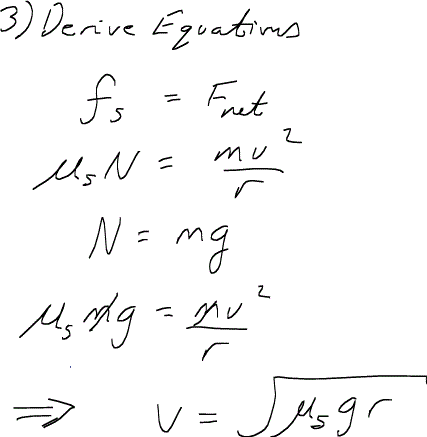 3) Derive Equations
fₛ = Fₙₑₜ
μₛN = mv²/r
N = mg
μₛmg = mv²/r
⇒ v = √(μₛgr)